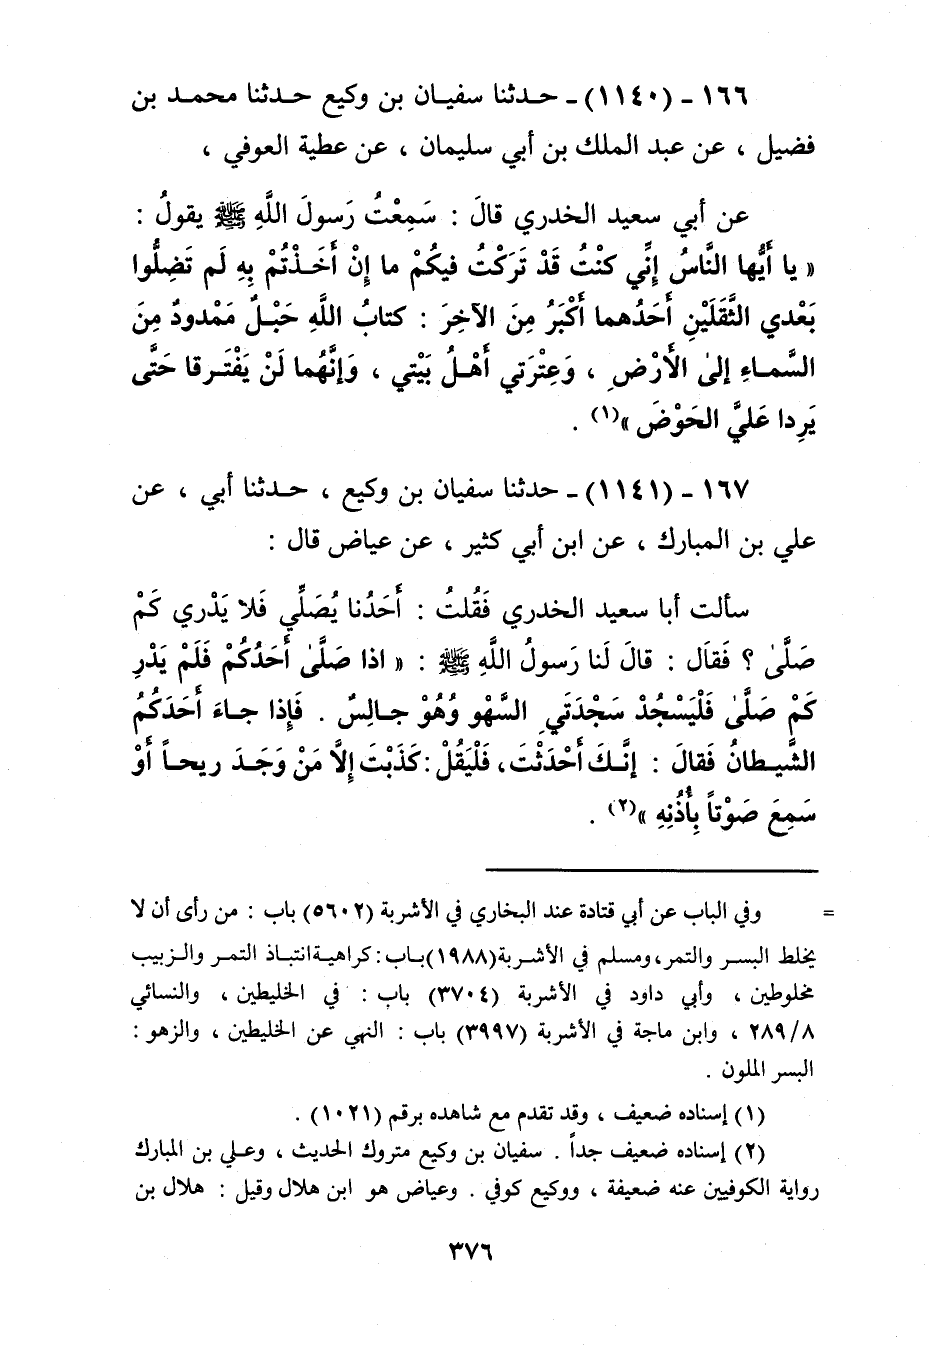 ١٦٦ - (١١٤٠) - حـدثنا سفيـان بن وكيع حـدثنا محمـد بن
فضيل ، عن عبد الملك بن أبي سليمان ، عن عطية العوفي ،
عن أبي سعيد الخدري قالَ : سَمِعْتُ رَسولَ اللَّهِ ﷺ يقولُ :
« يا أَيُّها النَّاسُ إِنِّي كنْتُ قَدْ تَرَكْتُ فيكُمْ ما إِنْ أَخَـذْتُمْ بِهِ لَم تَضِلُّوا
بَعْدي الثَّقَلَيْنِ أَحَدُهما أَكْبَرُ مِنَ الآخِرَ : كتابُ اللَّهِ حَبْـلٌ مَمْدودٌ مِنَ
السَّمـاءِ إلىٰ الأَرْضِ ، وَعِتْرَتي أَهْـلُ بَيْتي ، وَإِنَّهُما لَنْ يَفْتَـرقا حَتَّى
يَرِدا عَليَّ الحَوْضَ »(١) .
١٦٧ - (١١٤١) - حدثنا سفيان بن وكيع ، حـدثنا أبي ، عن
علي بن المبارك ، عن ابن أبي كثير ، عن عياض قال :
سألت أبا سعيد الخدري فَقُلتُ : أَحَدُنا يُصَلِّي فَلا يَدْري كَمْ
صَلَّىٰ ؟ فَقاَل : قالَ لَنا رَسولُ اللَّهِ ﷺ : « اذا صَلَّىٰ أَحَدُكُمْ فَلَمْ يَدْرِ
كَمْ صَلَّىٰ فَلْيَسْجُدْ سَجْدَتَيِ السَّهْو وُهُوْ جالِسٌ . فَإِذا جـاءَ أَحَدَكُمُ
الشَّيطانُ فَقالَ : إِنَّـكَ أَحْدَثْتَ، فَلْيَقُلْ : كَذَبْتَ إِلَّا مَنْ وَجَـدَ ريحـاً أَوْ
سَمِعَ صَوْتاً بِأُذُنِهِ »(٢) .
= وفي الباب عن أبي قتادة عند البخاري في الأشربة (٥٦٠٢) باب : من رأى أن لا
يخلط البسـر والتمر، ومسلم في الأشـربة(١٩٨٨)بـاب : كراهيـةانتبـاذ التمـر والـزبيب
مخلوطين ، وأبي داود في الأشربة (٣٧٠٤) باب : في الخليطين ، والنسائي
٢٨٩/٨ ، وابن ماجة في الأشربة (٣٩٩٧) باب : النهي عن الخليطين ، والزهو :
البسر الملون .
(١) إسناده ضعيف ، وقد تقدم مع شاهده برقم (١٠٢١) .
(٢) إسناده ضعيف جداً . سفيان بن وكيع متروك الحديث ، وعـلي بن المبارك
رواية الكوفيين عنه ضعيفة ، ووكيع كوفي . وعياض هو ابن هلال وقيل : هلال بن
٣٧٦